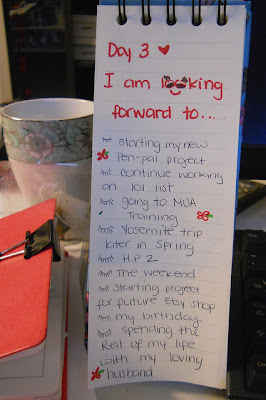 Day 3 ♥
I am looking
forward to.....
starting my new
Pen-pal project
continue working
on 101 list
going to MUA
Training
Yosemite trip
later in Spring
H.P. 2
The weekend
starting project
for future Etsy shop
my birthday
spending the
Rest of my life
with my loving
husband